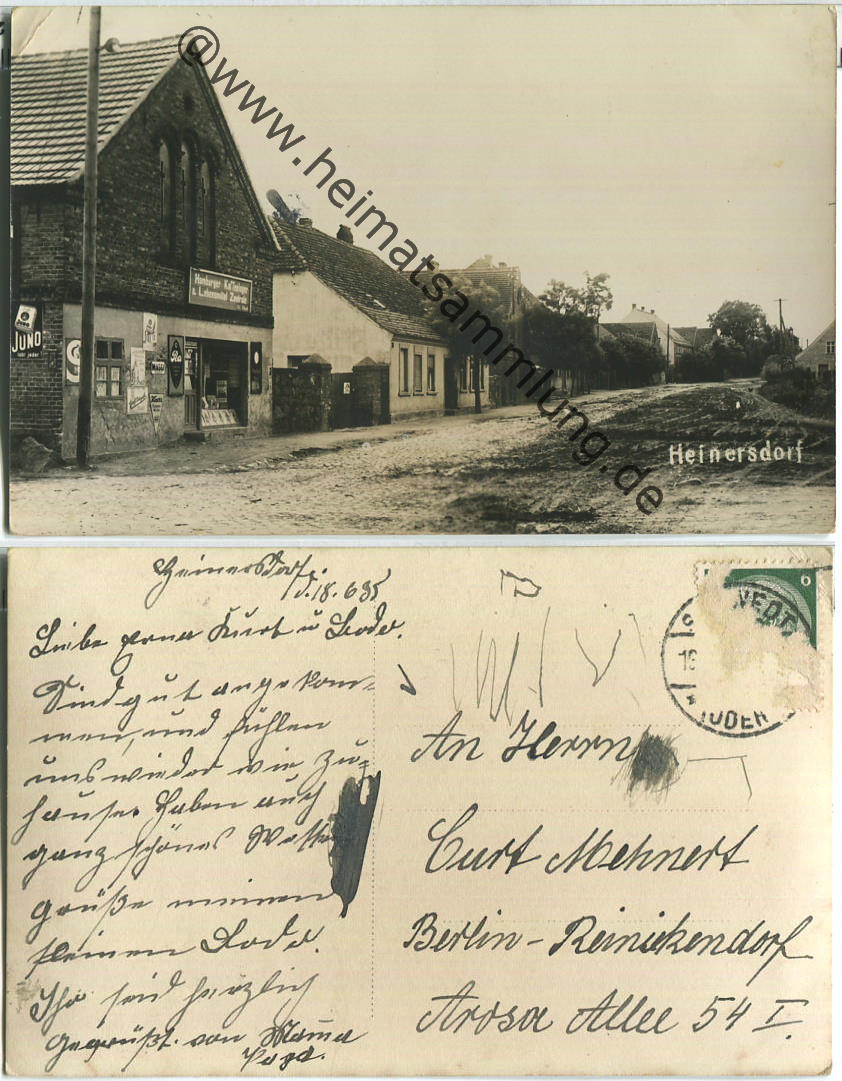 @www.heimatsammlung.de
Hamburger Kaffeelager
u. Lebensmittel Zentrale
JUNO
Heinersdorf
Heinersdorf.
d. 18.6.35
Liebe Erna Kurt u Bodo.
Sind gut angekom-
men, und fühlen
uns wieder wie zu-
hause. Haben auch
ganz schönes Wetter
grüße meinen
kleinen Bodo.
Ihr seid herzlich
gegrüßt. von Mama
Papa.
6
WEDT
(ODER
An Herrn
Curt Mehnert
Berlin-Reinickendorf
Arosa Allee 54 I.